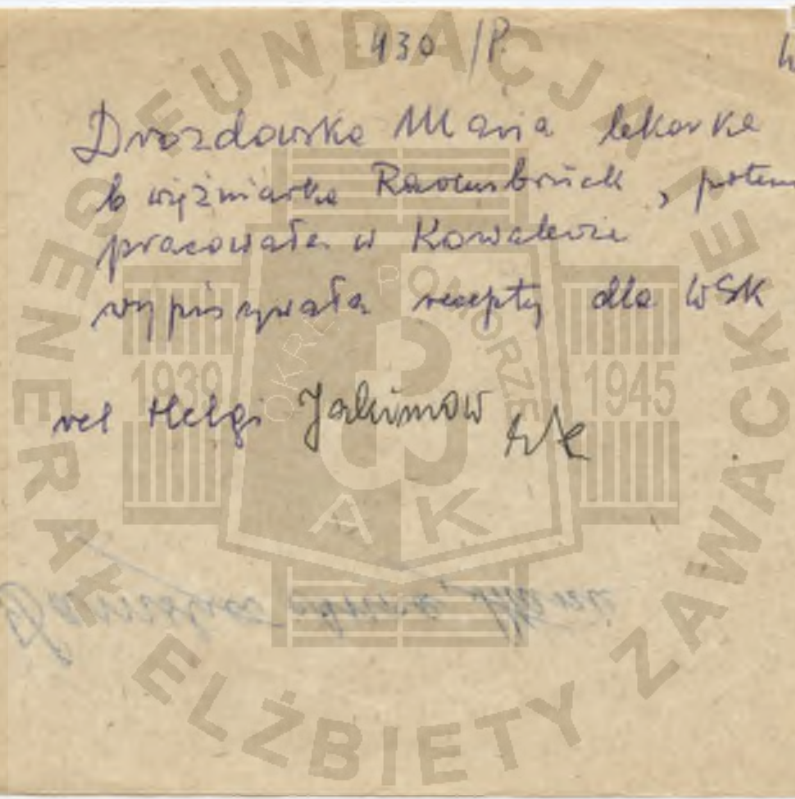 430/P.
Drozdowska Maria lekarka
b więźniarka Ravensbrück, potem
pracowała w Kowalewie
wypisywała recepty dla WSK
rel Helgi Jakimow
FUNDACJA GENERAŁ ELŻBIETY ZAWACKIEJ
OKRĘG POMORZE
1939 1945
AK